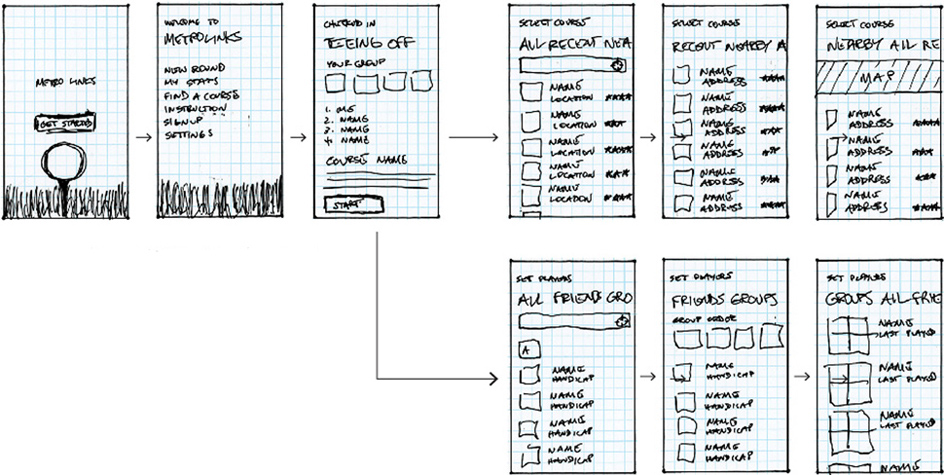 METRO LINKS
GET STARTED
WELCOME TO
METROLINKS
NEW ROUND
MY STATS
FIND A COURSE
INSTRUCTION
SIGNUP
SETTINGS
CHECKED IN
TEEING OFF
YOUR GROUP
1. ME
2. NAME
3. NAME
4. NAME
COURSE NAME
START
SELECT COURSE
ALL RECENT NEA
NAME
LOCATION ****
NAME
LOCATION ***
NAME
LOCATION ****
NAME
LOCATION ***
NAME
LOCATION ****
SELECT COURSE
RECENT NEARBY A
NAME
ADDRESS ****
NAME
ADDRESS ****
NAME
ADDRESS ***
NAME
ADDRESS **
NAME
ADDRESS ***
NAME
ADDRESS ****
SELECT COURSE
NEARBY ALL RE
MAP
NAME
ADDRESS ****
NAME
ADDRESS ***
NAME
ADDRESS ***
NAME
ADDRESS ****
SET PLAYERS
ALL FRIENDS GRO
A
NAME
HANDICAP
NAME
HANDICAP
NAME
HANDICAP
NAME
HANDICAP
SET PLAYERS
FRIENDS GROUPS
GROUP ORDER
NAME
HANDICAP
NAME
HANDICAP
NAME
HANDICAP
NAME
HANDICAP
SET PLAYERS
GROUPS ALL FRIE
NAME
LAST PLAYED
NAME
LAST PLAYED
NAME
LAST PLAYED
NAME